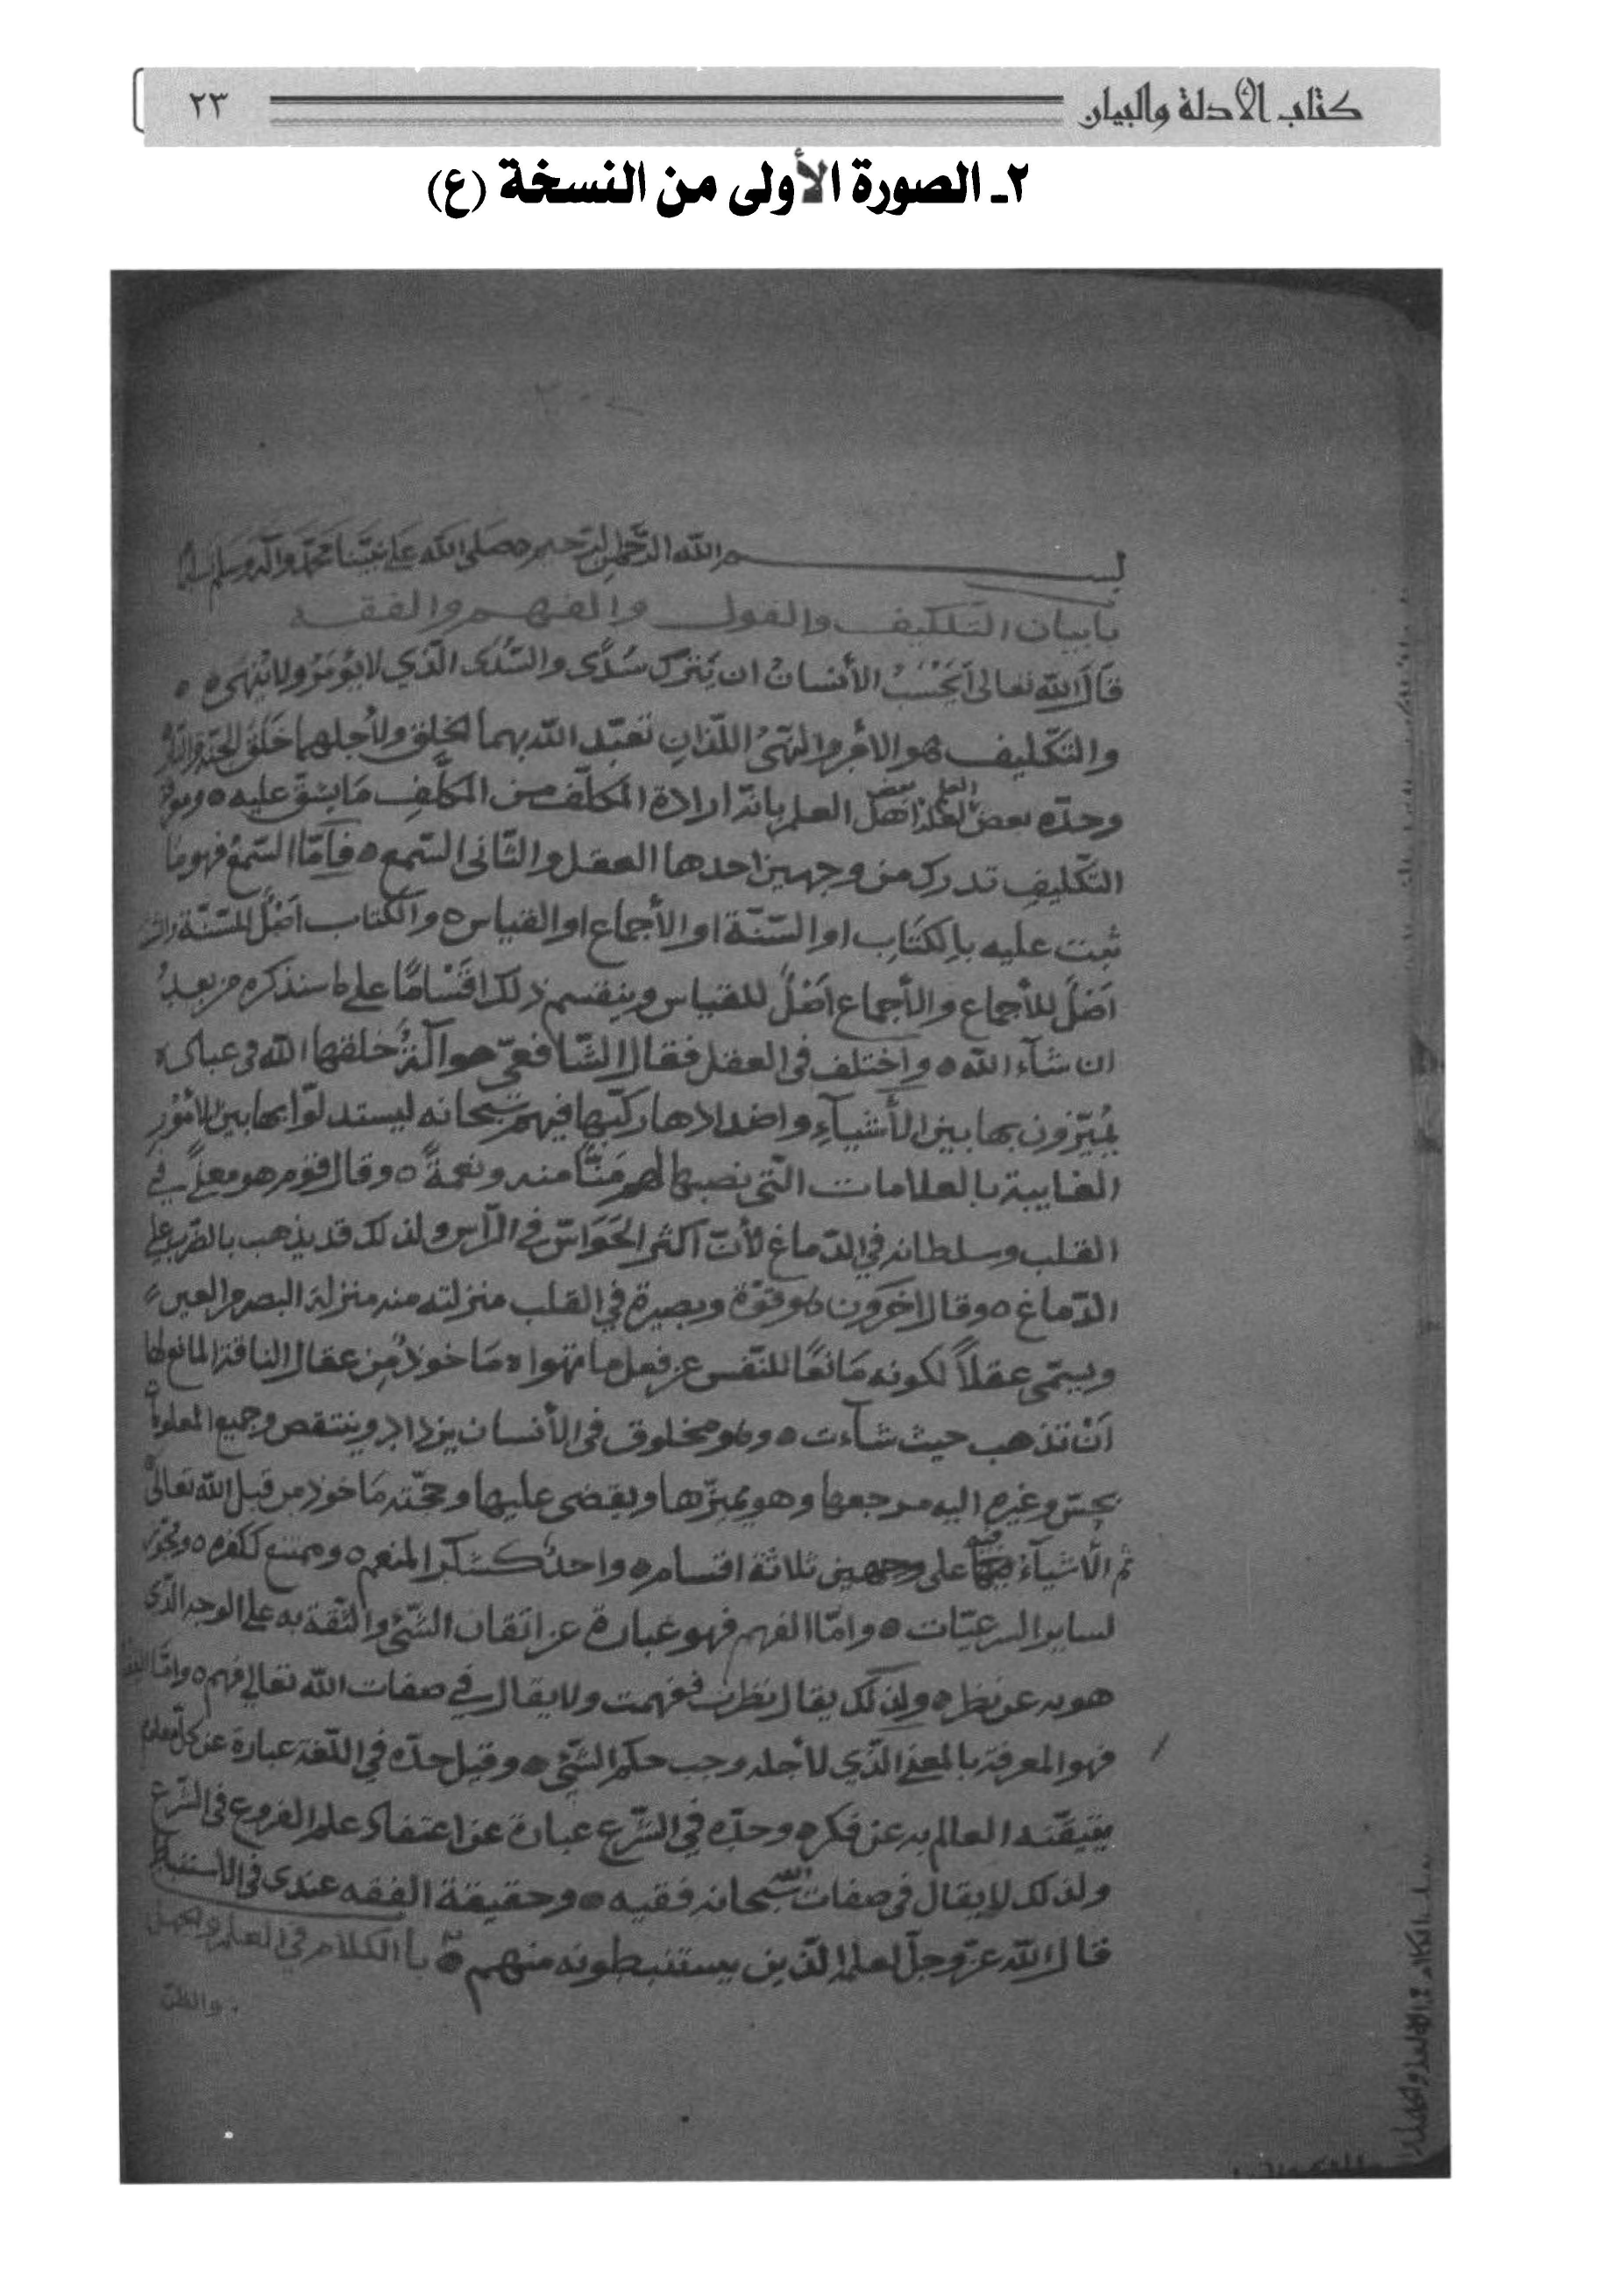 كتاب الأدلة والبيان
٢٣
٢ـ الصورة الأولى من النسخة (ع)
بسم الله الرّحمن الرّحيم ه صَلى الله على نبيّنا محمّد وآله وسلم
باب بيان التكليف والقول والفهم والفقه
قَالَ الله تعالى أيَحْسَبُ الأنسانُ ان يَترك سُدًى والسُّدَى الّذي لا يُؤمَرُ ولا يُنهَى ه ه
والتكّليف هو الأمر والنّهيُ اللّذانِ تعبّد الله بهما الخلق ولأجلهما خَلَقَ الجنّة والنّار
وحدّه بعض اهل العلم بانّه ارادة المكلّف من المكلَّفِ مَا يشقّ عليه ه
التكّليفِ تدرك من وجهين احدها العقل والثّانى السّمع ه فأمّا السّمعُ فهو مَا
ثبت عليه بالكتَابِ او السّنّة او الأجماع او القياس ه والكتاب اَصْلٌ للسّنّة
اَصْلٌ للأجماع والأجماع اَصْلٌ للقياس وينقسم ذلك اقْسَامًا على ما سنذكره من بعدُ
ان شآء الله ه واختلف فى العقل فقال الشّافعىّ هو آلةٌ خلقها الله فى عباده
يُميّزون بها بين الأشيآءِ واضدادها ركّبها فيهم سبحانه ليستدلّوا بها بين الأمُورِ
الغايبة بالعلامات الّتى نصبها لهم مَنًّا منه ونعمةً ه وقال قوم هو معلىً في
القلب وسلطانه في الدّماغ لأنّ اكثر الحَوَاسّ في الرّاس ولذلك قد يذهب بالضّرب على
الدّماغ ه وقال اخرون هو قوّة وبصيرة في القلب منزلته منه منزلة البصر من العين ه
ويسمّى عقلاً لكونه مَانعًا للنّفس عن فعل ما تهوا ه مَاخوذٌ مِن عقال الناقة المانع لها
اَنْ تذهب حيث شآءت ه وهو مخلوق فى الأنسان يزداد وينتقص وجميع المعلومات
بحِسّ وغيره اليه مرجعها وهو يميزّها ويقضى عليها وحجّته مَاخوذ من قبل الله تعالىَ
ثم الأشيآءُ فيه على وجهين ثلاثة اقسام ه واحدٌ كشكر المنعم ه وممتنع ككفره ه
لساير السرعيّات ه وامّا الفهم فهو عبارة عن اتقان الشّئ والثّقة به على الوجه الّذى
هو به عن نظر ه ولذلك يقال نظرت ففهمت ولا يقال في صفات الله تعالى فهم ه وامّا الفقه
فهو المعرفة بالمعنى الّذي لأجله وجب حكم الشّئ ه وقيل حدّه في اللّغة عبارة عن كلّ معلوم
يتيقّنه العالم به عن فكر ه وحدّه في الشّرع عبارة عن اعتقاد علم الفروع فى الشّرع
ولذلك لا يقال فى صفات الله سبحانه فقيه ه وحقيقة الفقه عندى فى الاستنباط
قال الله عزّ وجلّ لعلمه الّذين يستنبطونه منهم ه باب الكلام في العلم والجهل
والظنّ